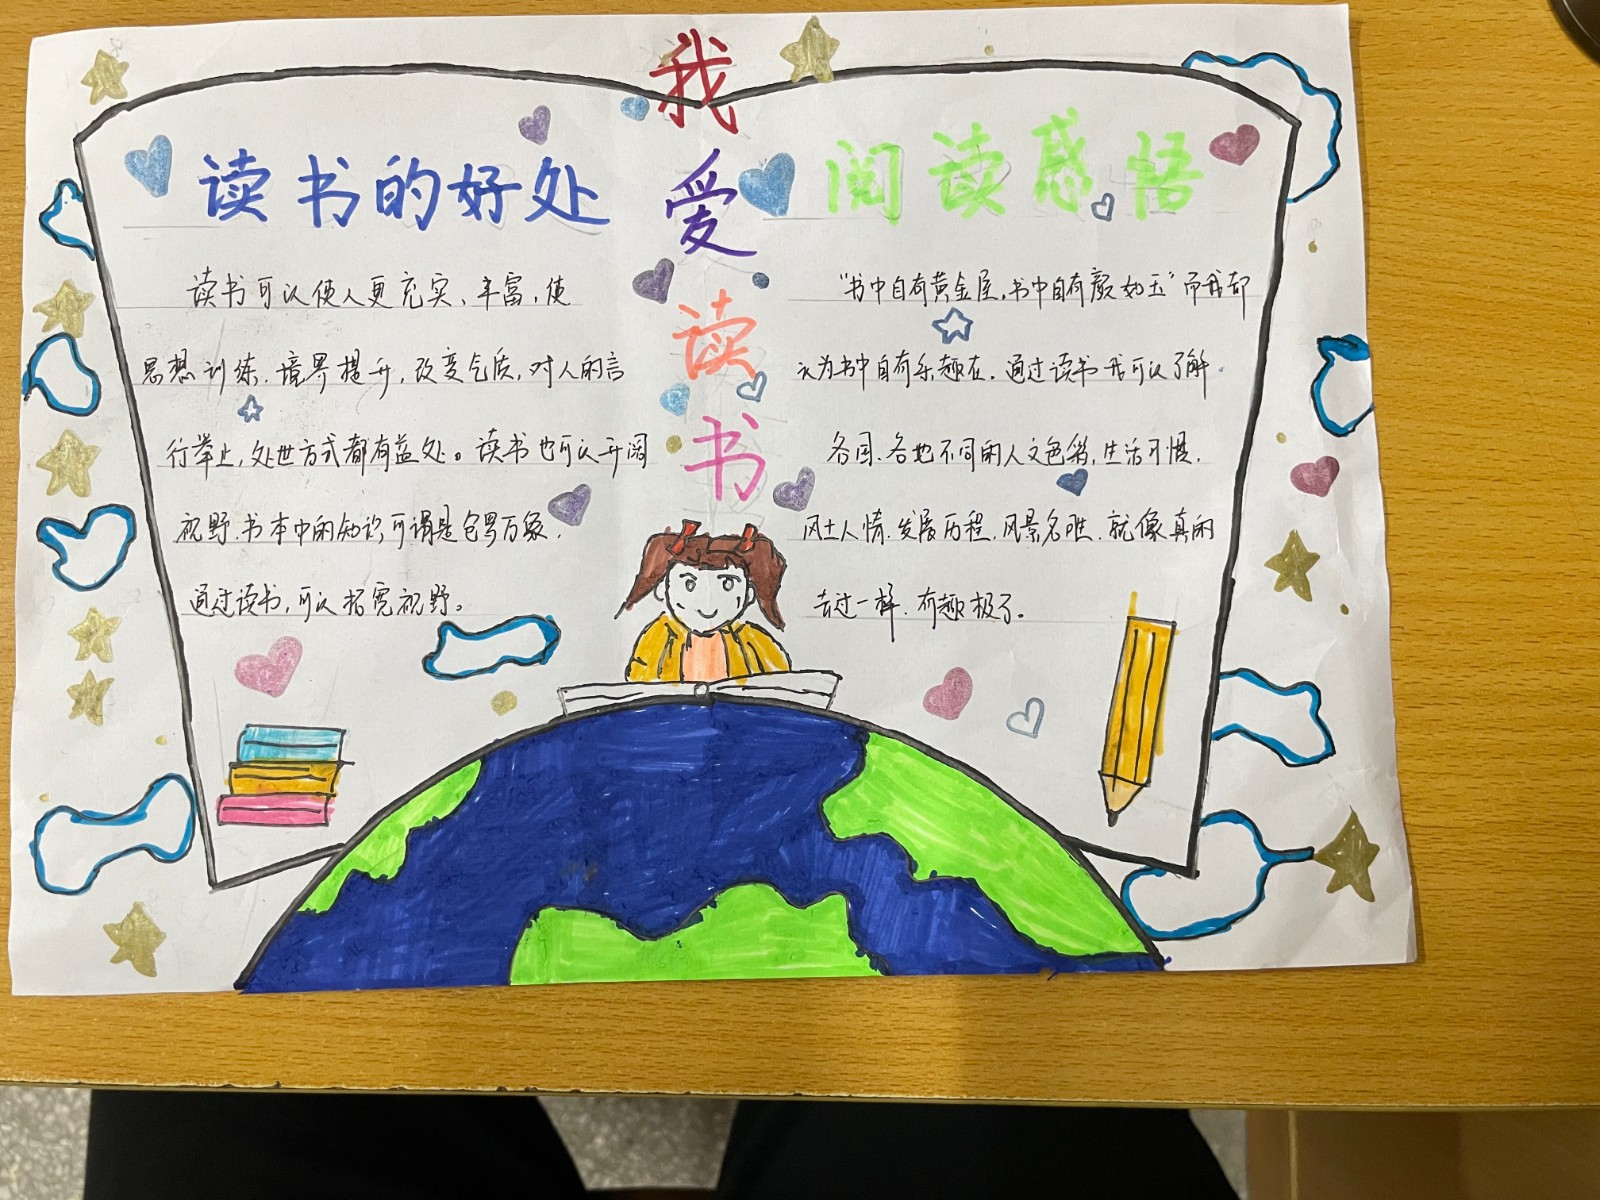 我爱读书
读书的好处
读书可以使人更充实、丰富,使
思想训练,境界提升,改变气质,对人的言
行举止,处世方式都有益处。读书也可以开阔
视野.书本中的知识可谓是包罗万象,
通过读书,可以拓宽视野。
阅读感悟
“书中自有黄金屋,书中自有颜如玉”而我却
认为书中自有乐趣在.通过读书我可以了解
各国.各地不同的人文色彩,生活习惯,
风土人情.发展历程,风景名胜.就像真的
去过一样.有趣极了。